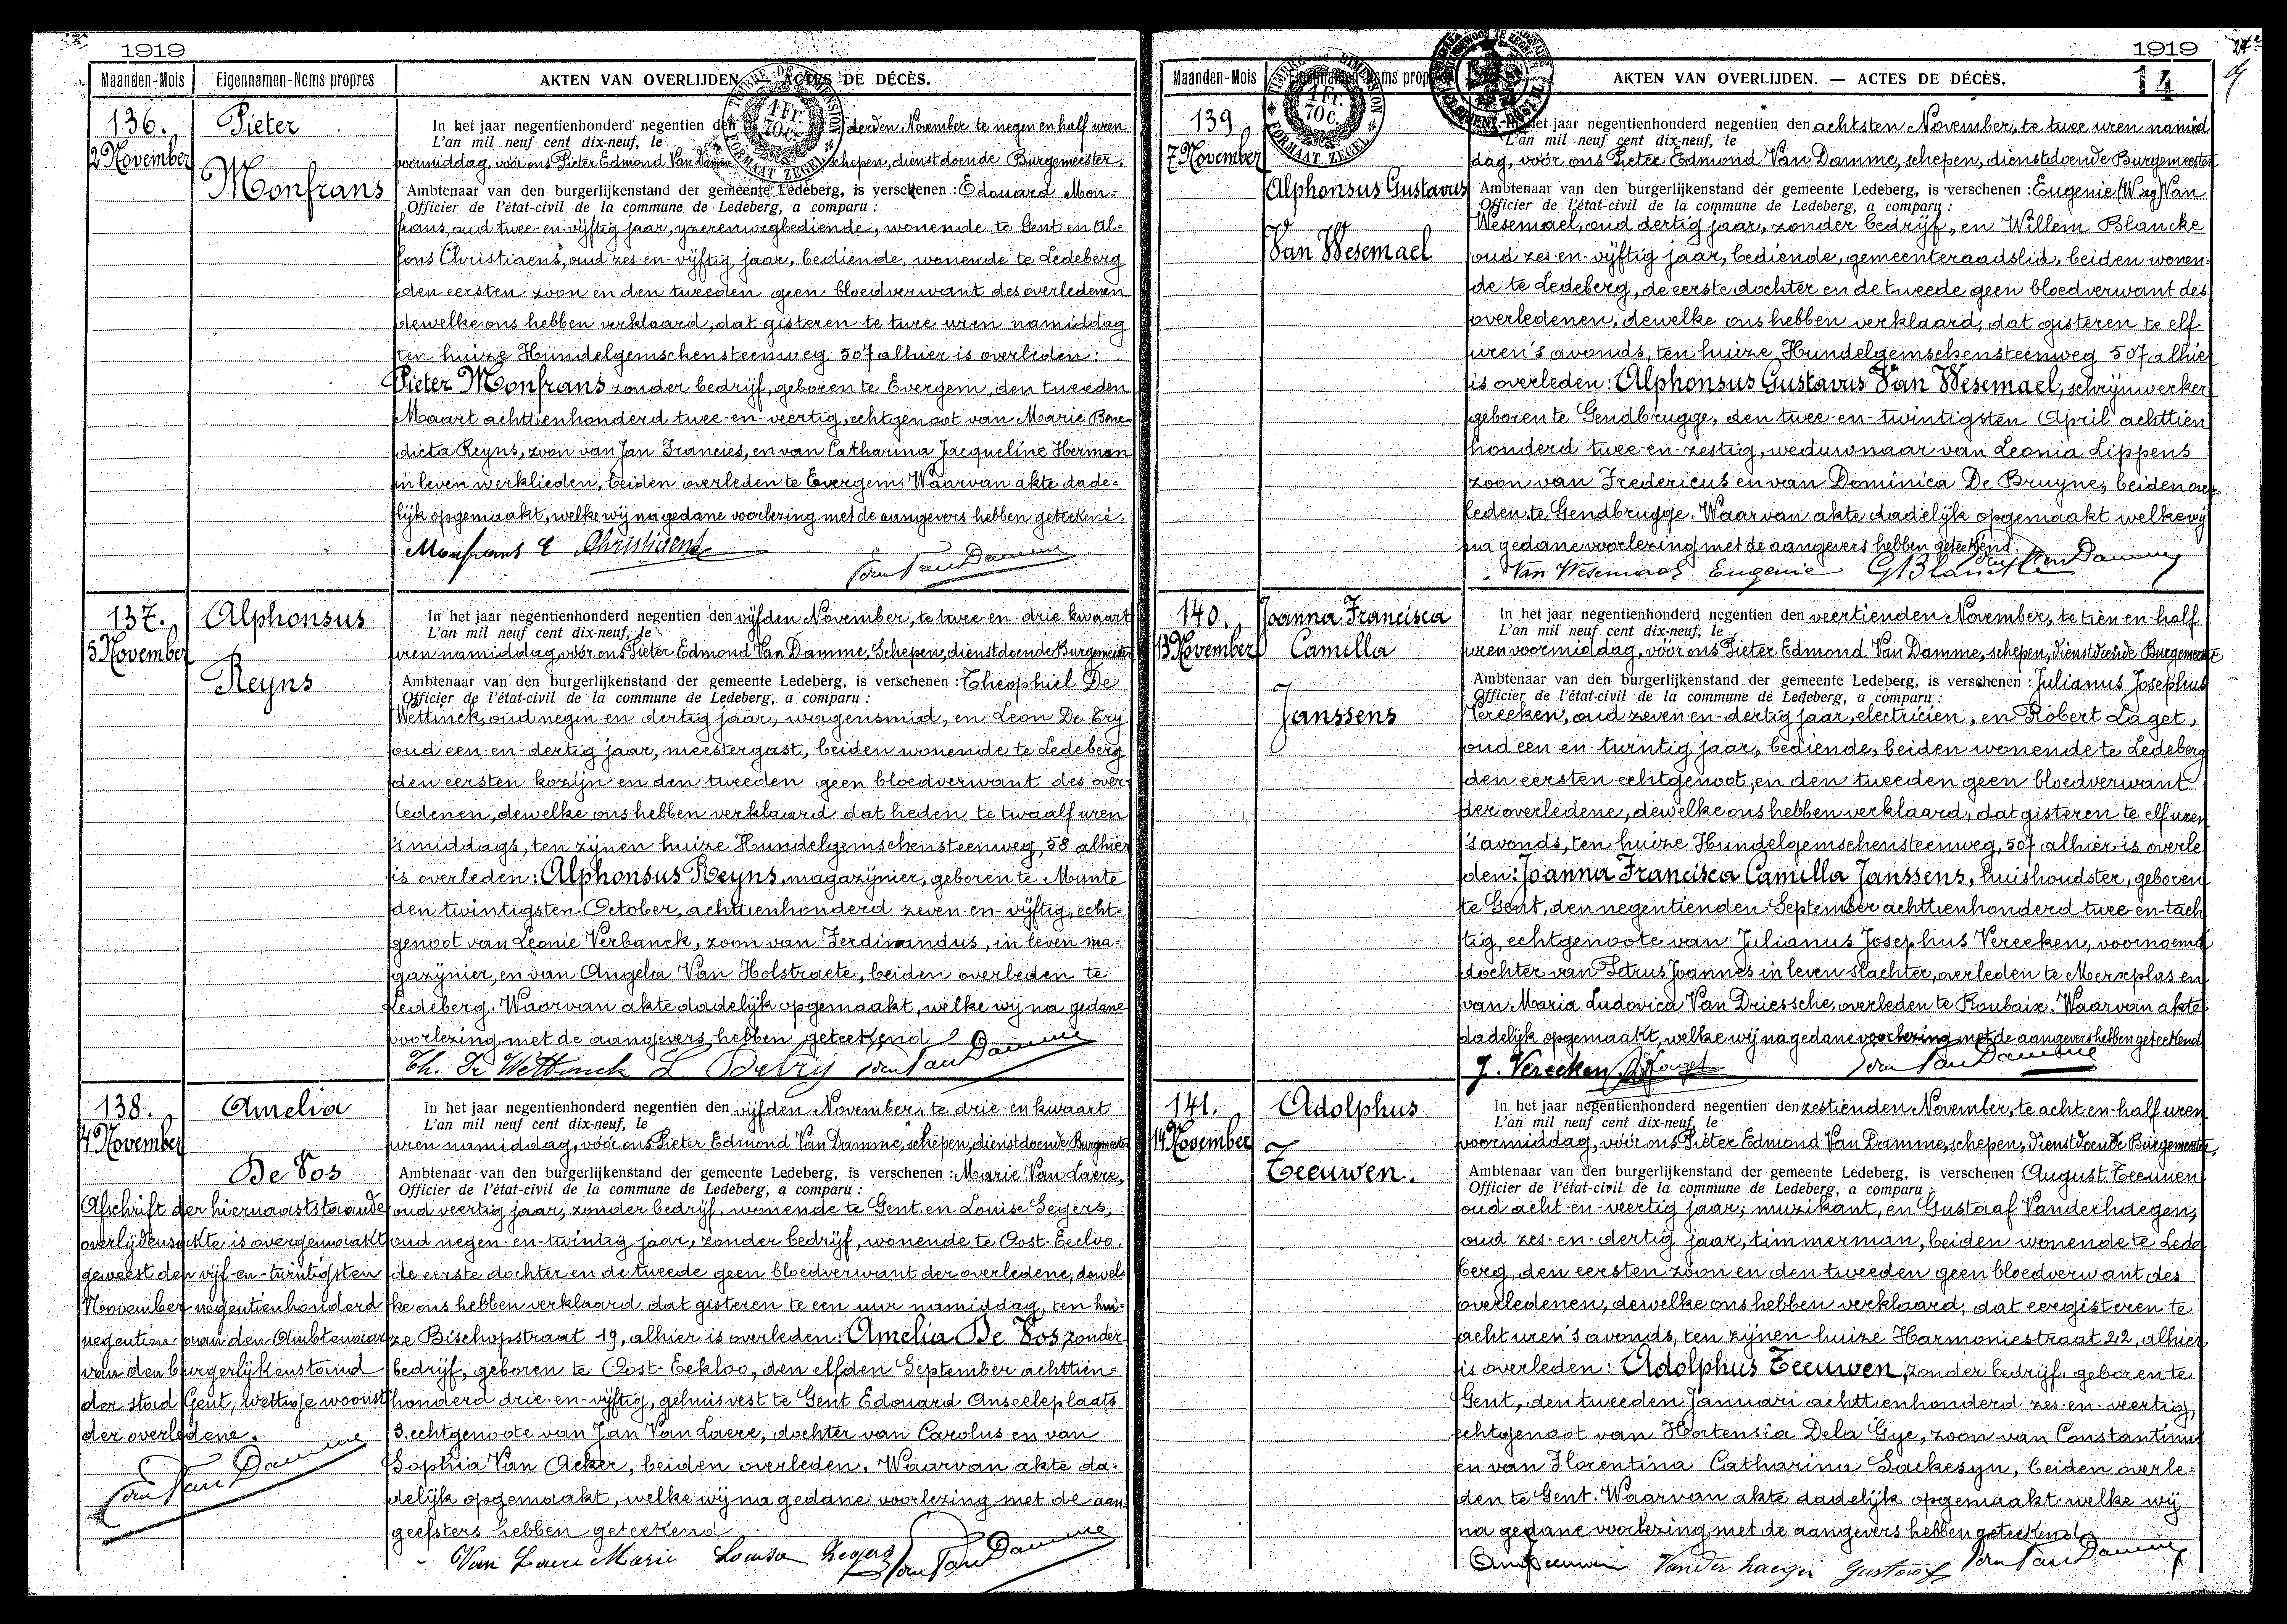 1919
Maanden-Mois Eigennamen-Noms propres AKTEN VAN OVERLIJDEN — ACTES DE DÉCÈS.
TIMBRE DE DIMENSION
1 Fr.
70 c.
FORMAAT ZEGEL
136.
2 November
Pieter
Monfrans
In het jaar negentienhonderd negentien den derden November te negen en half uren
L'an mil neuf cent dix-neuf, le
voormiddag, vóór ons Pieter Edmond Van Damme schepen, dienstdoende Burgemeester,
Ambtenaar van den burgerlijkenstand der gemeente Ledeberg, is verschenen : Edouard Mon=
Officier de l'état-civil de la commune de Ledeberg, a comparu :
frans, oud twee-en-vijftig jaar, yzerenwegbediende, wonende te Gent en Al=
fons Christiaens, oud zes-en-vijftig jaar, bediende, wonende te Ledeberg
den eersten zoon en den tweeden geen bloedverwant des overledenen
dewelke ons hebben verklaard, dat gisteren te twee uren namiddag
ten huize Hundelgemschensteenweg 507 alhier is overleden:
Pieter Monfrans zonder bedrijf, geboren te Evergem, den tweeden
Maart achttienhonderd twee-en-veertig, echtgenoot van Marie Bene=
dicta Reyns, zoon van Jan Francies, en van Catharina Jacqueline Herman
in leven werklieden, beiden overleden te Evergem. Waarvan akte dade=
lijk opgemaakt, welke wij na gedane voorlezing met de aangevers hebben geteekend.
Monfrans E Christiaens Van Damme
137.
5 November
Alphonsus
Reyns
In het jaar negentienhonderd negentien den vijfden November, te twee en drie kwaart
L'an mil neuf cent dix-neuf, le
uren namiddag, vóór ons Pieter Edmond Van Damme, Schepen, dienstdoende Burgemeester
Ambtenaar van den burgerlijkenstand der gemeente Ledeberg, is verschenen : Theophiel De
Officier de l'état-civil de la commune de Ledeberg, a comparu :
Wettinck, oud negen-en-dertig jaar, wagensmid, en Leon De Bry
oud een-en-dertig jaar, meestergast, beiden wonende te Ledeberg
den eersten kozijn en den tweeden geen bloedverwant des over=
ledenen, dewelke ons hebben verklaard dat heden te twaalf uren
's middags, ten zijnen huize Hundelgemschensteenweg, 58 alhier
is overleden: Alphonsus Reyns, magazijnier, geboren te Munte
den twintigsten October, achttienhonderd zeven-en-vijftig, echt=
genoot van Leonie Verbanck, zoon van Ferdinandus, in leven ma=
gazijnier, en van Angela Van Holstraete, beiden overleden te
Ledeberg. Waarvan akte dadelijk opgemaakt, welke wij na gedane
voorlezing met de aangevers hebben geteekend
Th. De Wettinck L Debrij Van Damme
138.
4 November
Amelia
De Vos
Afschrift der hiernaaststaande
overlijdensakte is overgemaakt
geweest den vijf-en-twintigsten
November negentienhonderd
negentien aan den Ambtenaar
van den burgerlijkenstand
der stad Gent, wettige woonst
der overledene.
Van Damme
In het jaar negentienhonderd negentien den vijfden November, te drie en kwaart
L'an mil neuf cent dix-neuf, le
uren namiddag, vóór ons Pieter Edmond Van Damme, schepen, dienstdoende Burgemeester
Ambtenaar van den burgerlijkenstand der gemeente Ledeberg, is verschenen : Marie Van Laere,
Officier de l'état-civil de la commune de Ledeberg, a comparu :
oud veertig jaar, zonder bedrijf, wonende te Gent, en Louise Segers,
oud negen-en-twintig jaar, zonder bedrijf, wonende te Oost-Eecloo.
de eerste dochter en de tweede geen bloedverwant der overledene, dewel=
ke ons hebben verklaard dat gisteren te een uur namiddag, ten hui=
ze Bischopstraat 19, alhier is overleden: Amelia De Vos, zonder
bedrijf, geboren te Oost-Eekloo, den elfden September achttien=
honderd drie-en-vijftig, gehuisvest te Gent Edouard Anseeleplaats
3. echtgenoote van Jan Van Laere, dochter van Carolus en van
Sophia Van Acker, beiden overleden. Waarvan akte da=
delijk opgemaakt, welke wij na gedane voorlezing met de aan=
geefsters hebben geteekend
Van Laere Marie Louisa Segers Van Damme
1919
14
Maanden-Mois Eigennamen-Noms propres AKTEN VAN OVERLIJDEN. — ACTES DE DÉCÈS.
TIMBRE DE DIMENSION
1 Fr.
70 c.
FORMAAT ZEGEL
139
7 November
Alphonsus Gustavus
Van Wesemael
In het jaar negentienhonderd negentien den achtsten November, te twee uren namid
L'an mil neuf cent dix-neuf, le
dag, vóór ons Pieter Edmond Van Damme, schepen, dienstdoende Burgemeester
Ambtenaar van den burgerlijkenstand der gemeente Ledeberg, is verschenen : Eugenie Van
Officier de l'état-civil de la commune de Ledeberg, a comparu :
Wesemael, oud dertig jaar, zonder bedrijf, en Willem Blancke
oud zes-en-vijftig jaar, bediende, gemeenteraadslid, beiden wonen=
de te Ledeberg, de eerste dochter en de tweede geen bloedverwant des
overledenen, dewelke ons hebben verklaard, dat gisteren te elf
uren 's avonds, ten huize Hundelgemschensteenweg 507 alhier
is overleden: Alphonsus Gustavus Van Wesemael, schrijnwerker
geboren te Gendbrugge, den twee-en-twintigsten April achttien
honderd twee-en-zestig, weduwnaar van Leonia Lippens
zoon van Fredericus en van Dominica De Bruyne, beiden over
leden te Gendbrugge. Waarvan akte dadelijk opgemaakt welke wij
na gedane voorlezing met de aangevers hebben geteekend.
Van Wesemael Eugenie G Blancke Van Damme
140.
13 November
Joanna Francisca
Camilla
Janssens
In het jaar negentienhonderd negentien den veertienden November, te tien en half
L'an mil neuf cent dix-neuf, le
uren voormiddag, vóór ons Pieter Edmond Van Damme, schepen, dienstdoende Burgemeester
Ambtenaar van den burgerlijkenstand der gemeente Ledeberg, is verschenen : Julianus Josephus
Officier de l'état-civil de la commune de Ledeberg, a comparu :
Vereeken, oud zeven-en-dertig jaar, electricien, en Robert Laget,
oud een-en-twintig jaar, bediende, beiden wonende te Ledeberg
den eersten echtgenoot, en den tweeden geen bloedverwant
der overledene, dewelke ons hebben verklaard, dat gisteren te elf uren
's avonds, ten huize Hundelgemschensteenweg, 507 alhier is overle
den: Joanna Francisca Camilla Janssens, huishoudster, geboren
te Gent, den negentienden September achttienhonderd twee-en-tach
tig, echtgenoote van Julianus Josephus Vereeken, voornoemd
dochter van Petrus Joannes in leven slachter, overleden te Merxplas en
van Maria Ludovica Van Driessche, overleden te Roubaix. Waarvan akte
dadelijk opgemaakt, welke wij na gedane voorlezing met de aangevers hebben geteekend
J. Vereeken Van Damme
141.
14 November
Adolphus
Teeuwen.
In het jaar negentienhonderd negentien den zestienden November, te acht en half uren
L'an mil neuf cent dix-neuf, le
voormiddag, vóór ons Pieter Edmond Van Damme, schepen, dienstdoende Burgemeester,
Ambtenaar van den burgerlijkenstand der gemeente Ledeberg, is verschenen : August Teeuwen
Officier de l'état-civil de la commune de Ledeberg, a comparu :
oud acht-en-veertig jaar, muzikant, en Gustaaf Vanderhaegen,
oud zes-en-dertig jaar, timmerman, beiden wonende te Lede
berg, den eersten zoon en den tweeden geen bloedverwant des
overledenen, dewelke ons hebben verklaard, dat eergisteren te
acht uren 's avonds, ten zijnen huize Harmoniestraat 22, alhier
is overleden: Adolphus Teeuwen, zonder bedrijf, geboren te
Gent, den tweeden Januari achttienhonderd zes-en-veertig,
echtgenoot van Hortensia Dela Gye, zoon van Constantinus
en van Florentina Catharina Sackesyn, beiden overle=
den te Gent. Waarvan akte dadelijk opgemaakt welke wij
na gedane voorlezing met de aangevers hebben geteekend
Vanderhaegen Gustaaf Van Damme